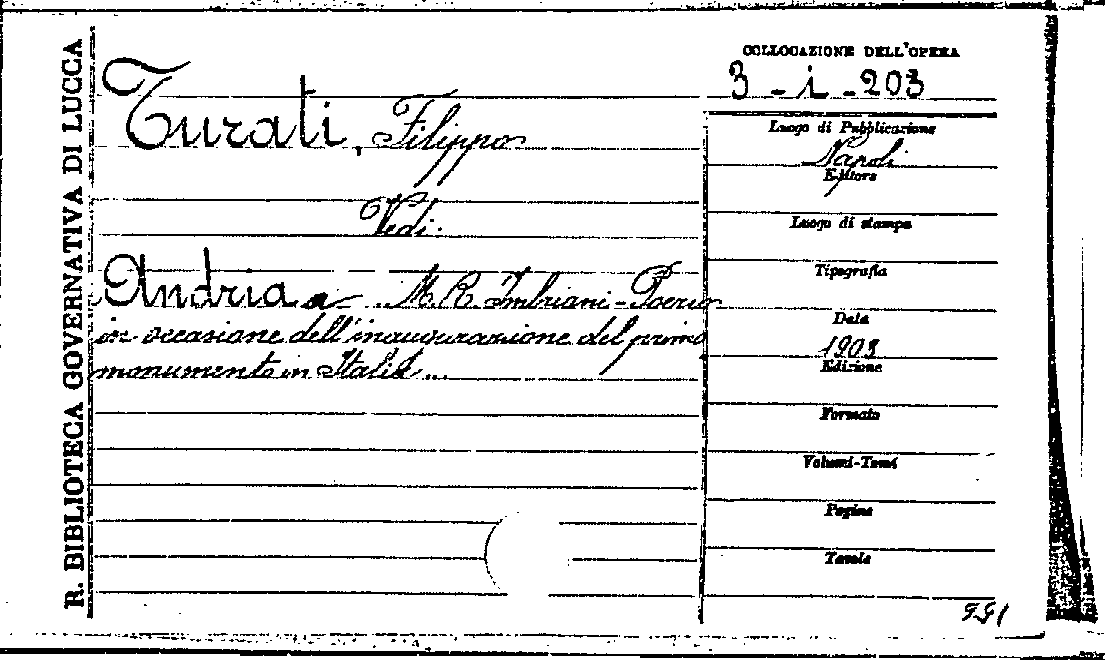 R. BIBLIOTECA GOVERNATIVA DI LUCCA
COLLOCAZIONE DELL'OPERA
3 - i - 203
Turati, Filippo
Vedi:
Andria a M. R. Imbriani-Poerio
in occasione dell'inaugurazione del primo
monumento in Italia...
Luogo di Pubblicazione
Napoli
Editore
Luogo di stampa
Tipografia
Data
1903
Edizione
Formato
Volumi-Tomi
Pagine
Tavole